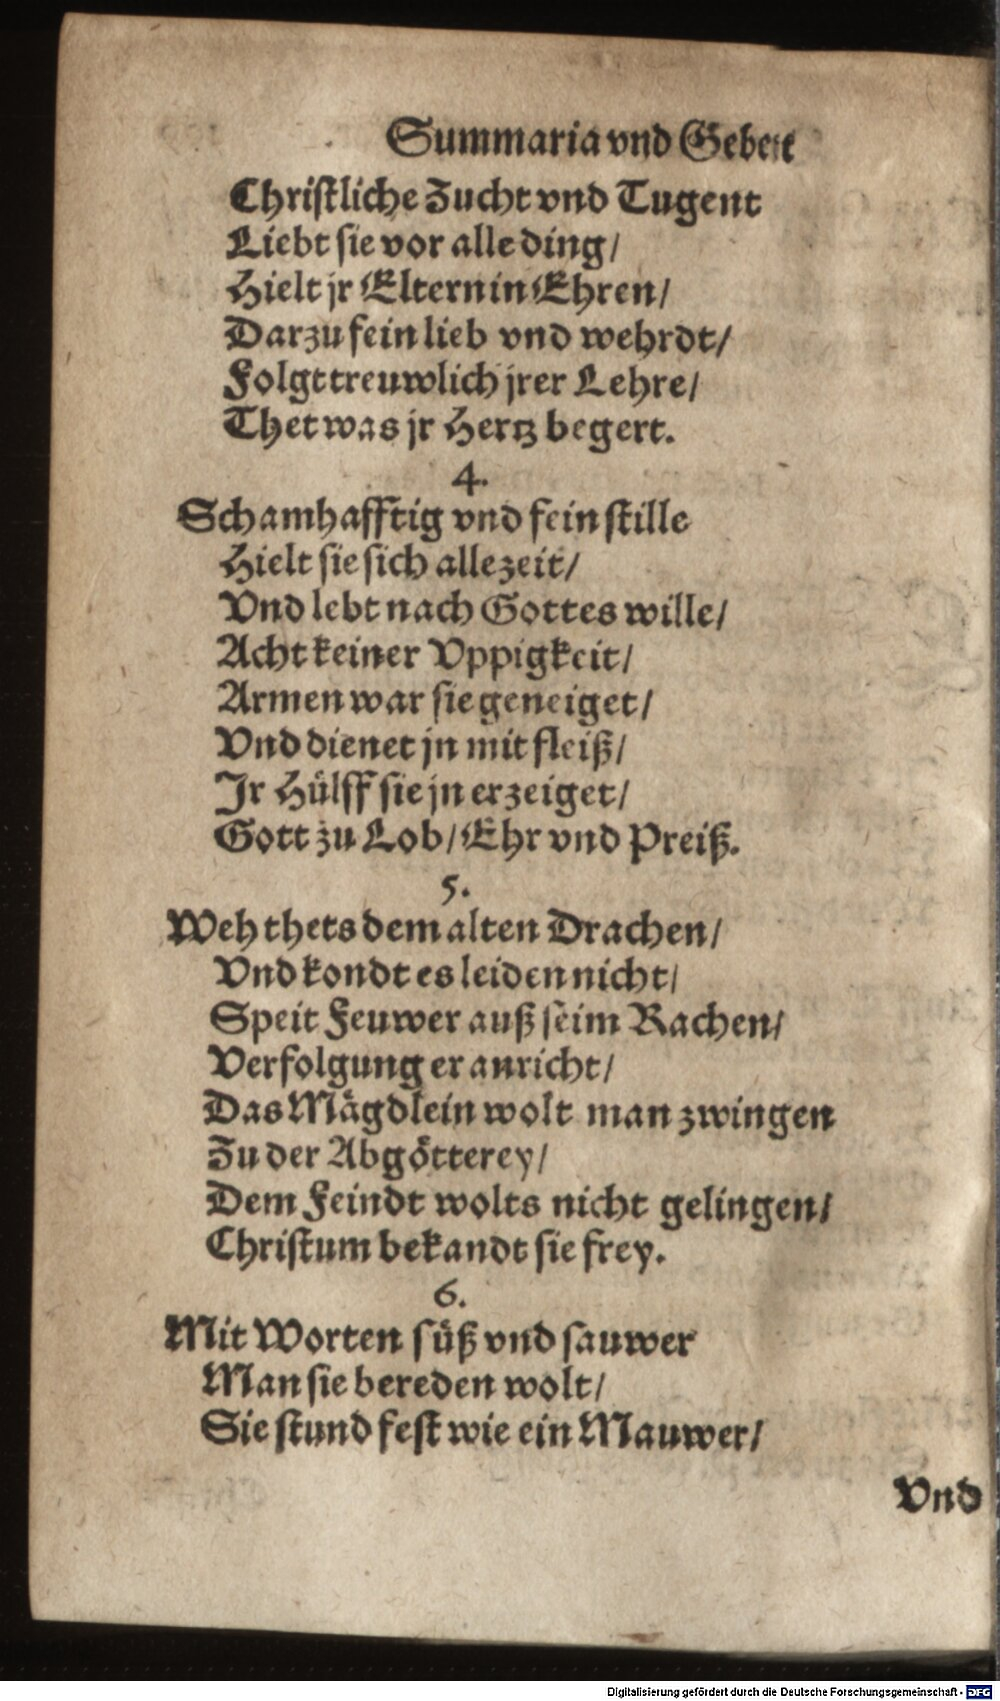 Summaria vnd Gebett
Christliche Zucht vnd Tugent
Liebt sie vor alle ding/
Hielt jr Eltern in Ehren/
Darzu fein lieb vnd wehrdt/
Folgt treuwlich jrer Lehre/
Thet was jr Hertz begert.
4.
Schamhafftig vnd fein stille
Hielt sie sich allezeit/
Vnd lebt nach Gottes wille/
Acht keiner Vppigkeit/
Armen war sie geneiget/
Vnd dienet jn mit fleiß/
Jr Hülff sie jn erzeiget/
Gott zu Lob/ Ehr vnd Preiß.
5.
Weh thets dem alten Drachen/
Vnd kondt es leiden nicht/
Speit Feuwer auß seim Rachen/
Verfolgung er anricht/
Das Mägdlein wolt man zwingen
Zu der Abgötterey/
Dem Feindt wolts nicht gelingen/
Christum bekandt sie frey.
6.
Mit Worten süß vnd sauwer
Man sie bereden wolt/
Sie stund fest wie ein Mauwer/
Vnd
Digitalisierung gefördert durch die Deutsche Forschungsgemeinschaft - DFG